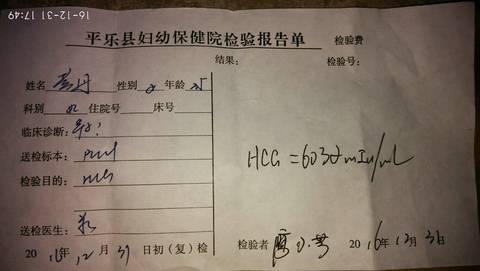 16-12-31 17:49
平乐县妇幼保健院检验报告单
检验费
结果:
检验号:
姓名 性别 女 年龄 25
科别 住院号 床号
临床诊断: 早?
送检标本:
检验目的: HCG
HCG = 6032mIu/mL
送检医生:
2016年12月31日初(复)检
检验者 2016年12月31日